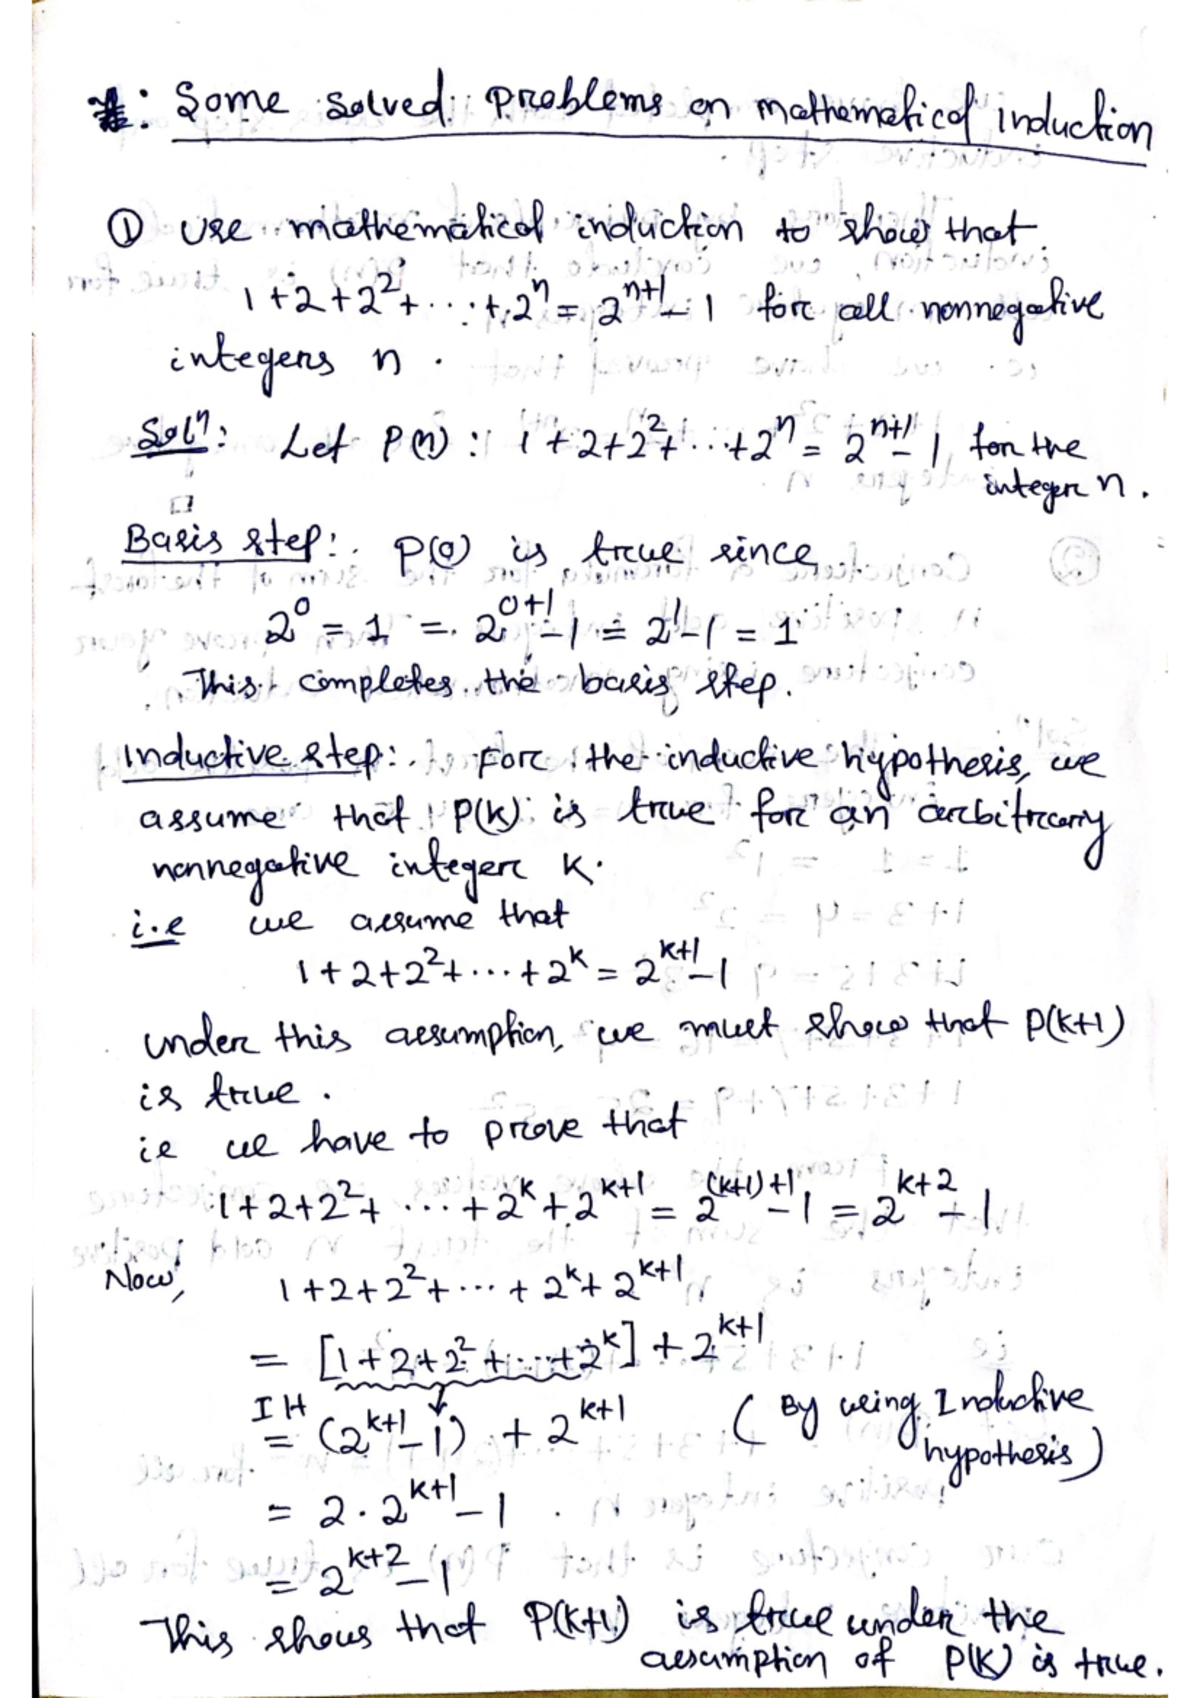 *: Some solved problems on mathematical induction
① Use mathematical induction to show that
1+2+2²+ ... +2ⁿ = 2ⁿ⁺¹ - 1 for all nonnegative
integers n .
Solⁿ: Let P(n) : 1+2+2²+ ... +2ⁿ = 2ⁿ⁺¹ - 1 for the
integer n .
Basis step: P(0) is true since
2⁰ = 1 = 2⁰⁺¹ - 1 = 2¹ - 1 = 1
This completes the basis step.
Inductive step: For the inductive hypothesis, we
assume that P(k) is true for an arbitrary
nonnegative integer k.
i.e we assume that
1+2+2²+ ... +2ᵏ = 2ᵏ⁺¹ - 1
under this assumption, we must show that P(k+1)
is true .
ie we have to prove that
1+2+2²+ ... +2ᵏ+2ᵏ⁺¹ = 2⁽ᵏ⁺¹⁾⁺¹ - 1 = 2ᵏ⁺² - 1
Now, 1+2+2²+ ... + 2ᵏ+ 2ᵏ⁺¹
= [1+2+2²+ ... +2ᵏ] + 2ᵏ⁺¹
IH
= (2ᵏ⁺¹ - 1) + 2ᵏ⁺¹ ( By using Inductive
hypothesis )
= 2 · 2ᵏ⁺¹ - 1
= 2ᵏ⁺² - 1
This shows that P(k+1) is true under the
assumption of P(k) is true.